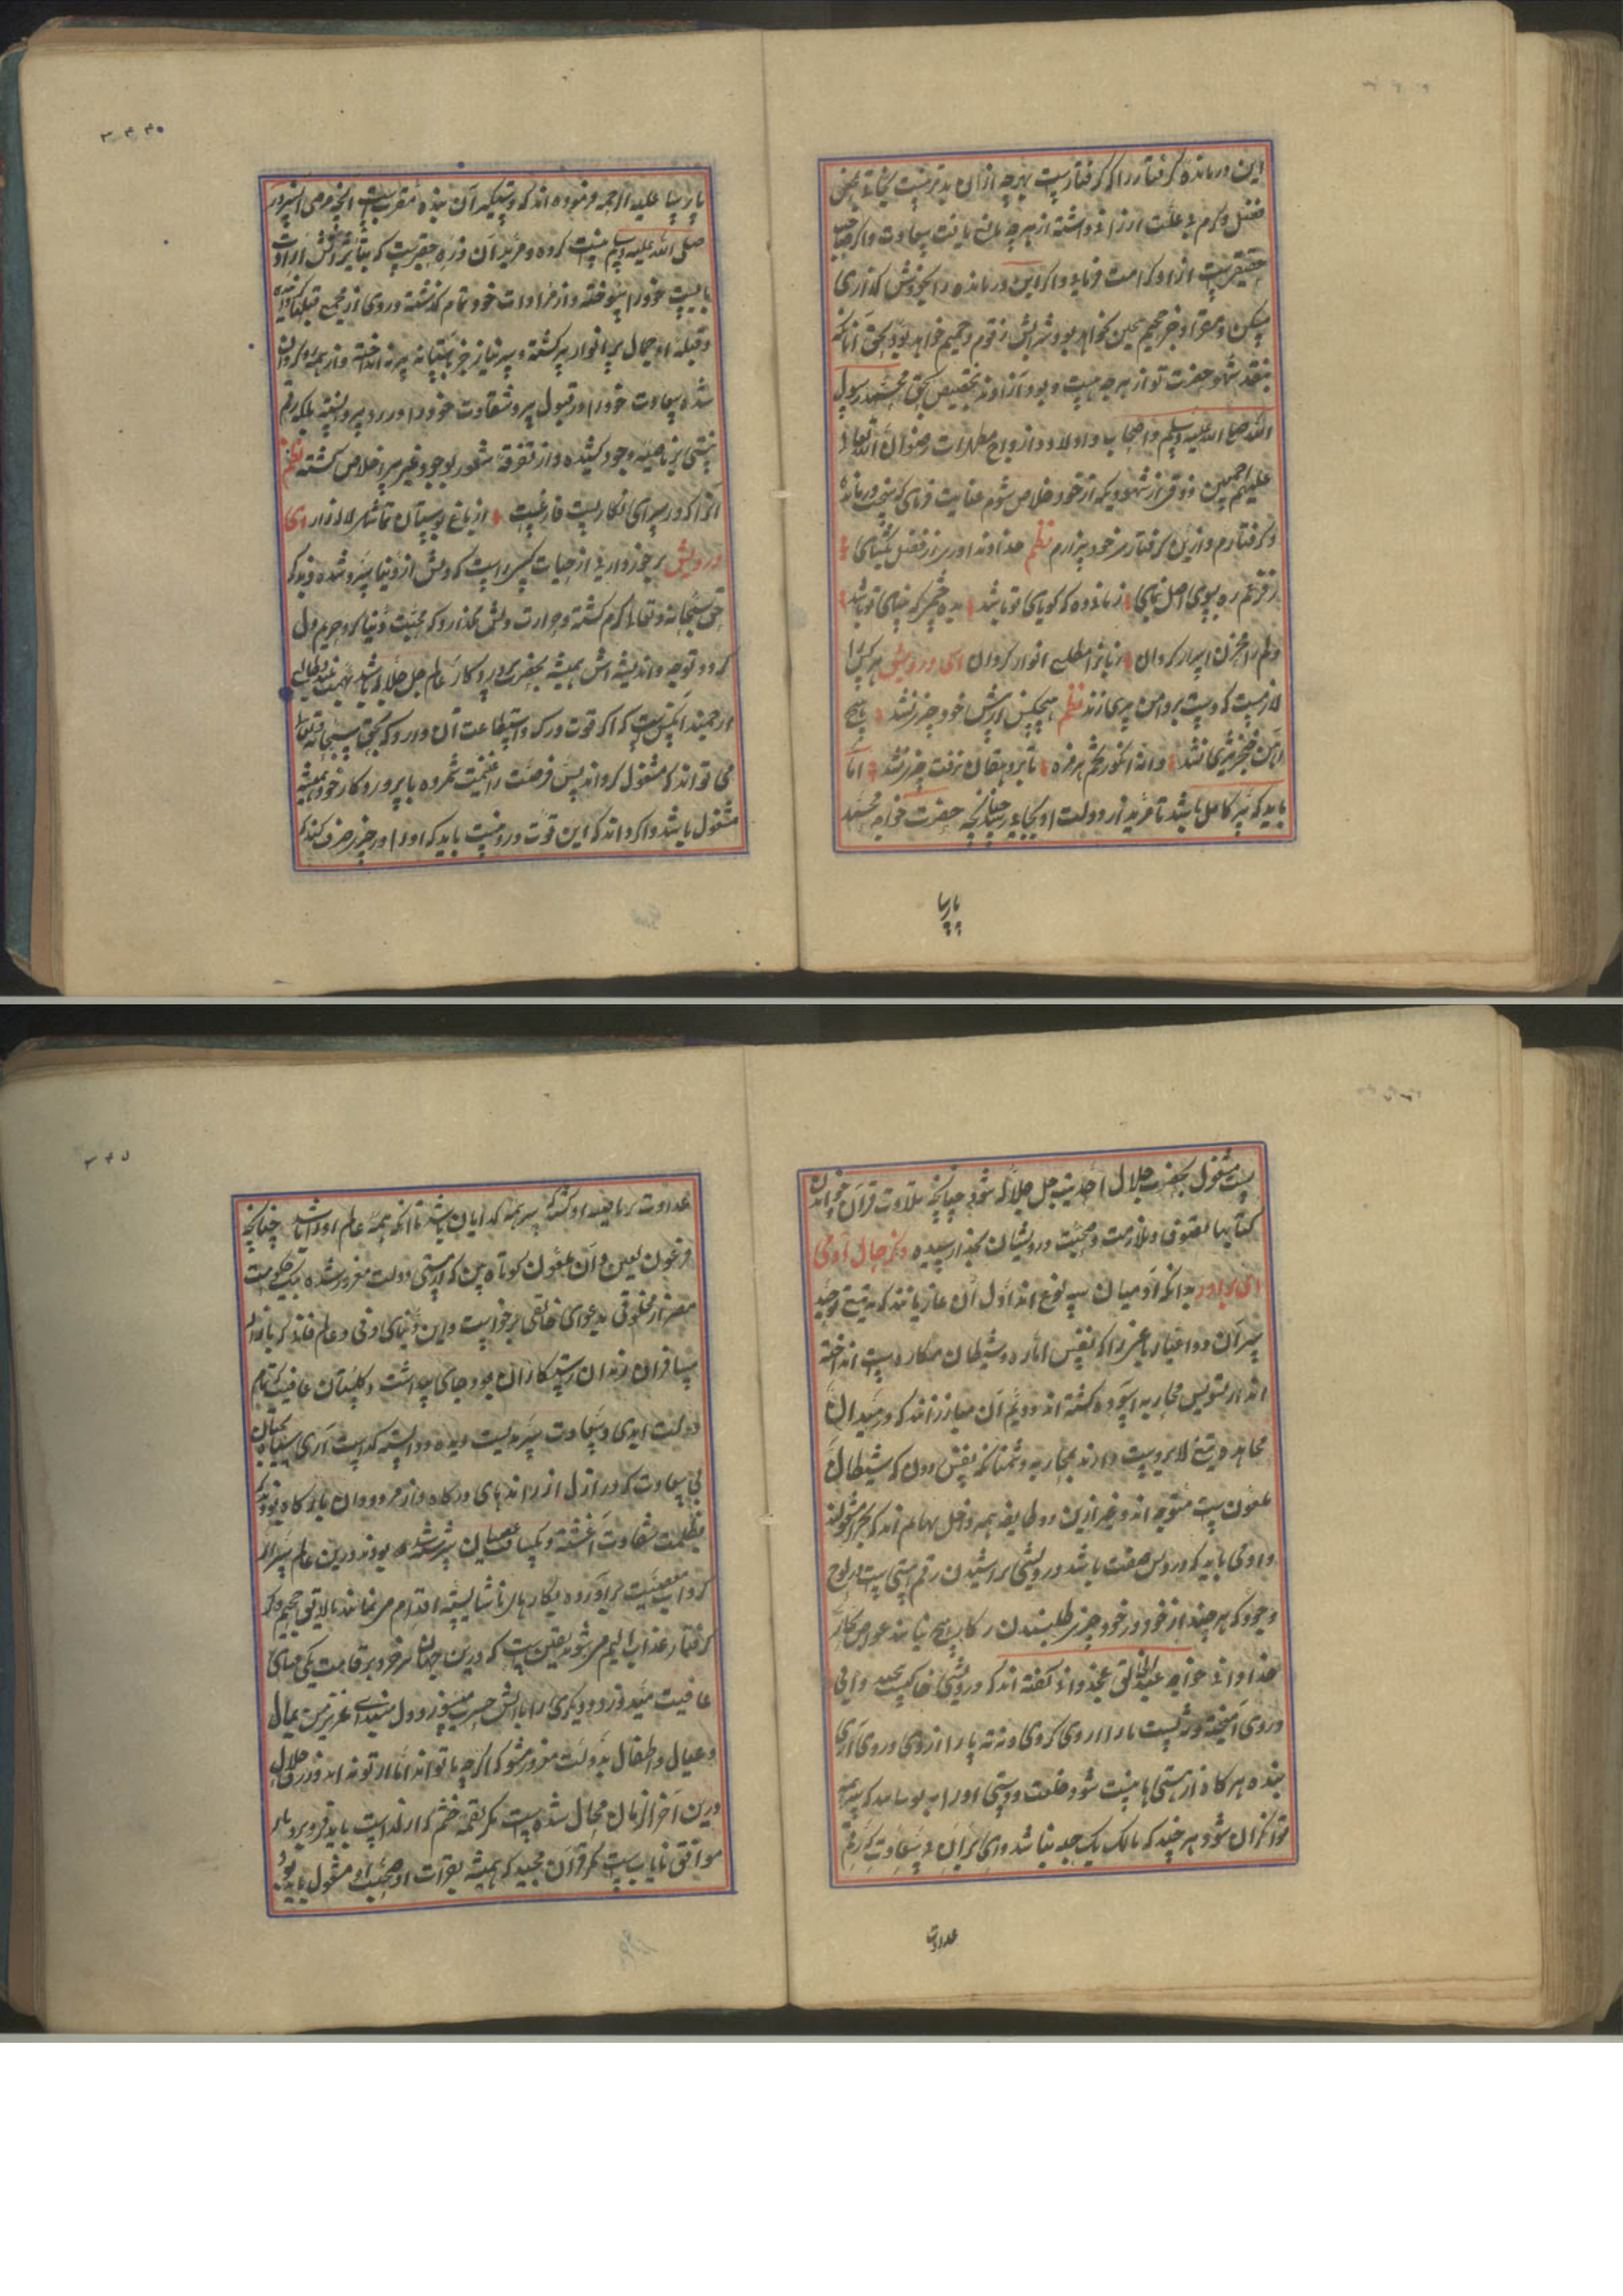 این درمانده گرفتار را که گرفتاریست بهرچه ازان بدتر نیست نجات بخش
فضل و کرم بی علت ارزانی داشته از هرچه مانع یافت سعادت و اکرام
حقیقیست ازاد کرامت فرمای و اکر این درمانده را بخودش گذاری
مسکن و مقر او جز جحیم سجین نخواهد بود و شرابش زقوم و حمیم خواهد بود بحق آنانکه
بنقد شهود حضرت تو از هرچه هست و بود آزادند بتخصیص بحق محمد رسول
الله صلی الله علیه وسلم و اصحاب و اولاد و ازواج مطهرات رضوان الله تعالی
علیهم اجمعین ذوقی از شهود یکه از خود خلاص شوم عنایت فرمای که سخت درمانده
و گرفتارم و ازین گرفتاری خود بیزارم نظم خداوندا در از فضل بگشای
زفرعم ره بسوی اصل بنمای زبانی ده که گویای تو باشد بده چشمی که بینای تو باشد
دلم را مخزن اسرار گردان زبانرا مطلع انوار گردان ای درویش هر کس را
لازمست که دست بر دامن پیری زند نظم هیچکس از پیش خود چیزی نشد هیچ
آهن خنجر تیزی نشد دانه انگور تخم هرزه تا بر دهقان نرفت چیزی نشد اما
باید که پیر کامل باشد تا مرید از دولت او بجایی رسد چنانچه حضرت خواجه محمد
پارسا
۳۴۴
پارسا علیه الرحمه فرموده اند که دستگیر آن بنده مقرب است انچه مرضی انسرور
صلی الله علیه وسلم هست کرده و مرید آن ذره حقیریست که بتاثیر آتش ارادت
بایست خود را سوخته و از مرادات خود تمام گذشته و روی از جمیع قبلها گردانیده
و قبله او جمال پر انوار پیر گشته و سر نیاز جز بآستانه پیر نه انداخته و از همه رو گردان
شده سعادت خود را در قبول پیر و شقاوت خود را در رد پیر دانسته بلکه رقم
نیستی بر ناصیه وجود کشیده و از تفرقه شعور بوجود غیر پیر خلاص گشته نظم
آنرا که در سرای نگاریست فارغست از باغ و بوستان و تماشای لاله زار ای
درویش برخورداری از حیات کسیراست که دلش از دنیا سرد شده و بذکر
حق سبحانه و تعالی گرم گشته و حرارت دلش نگذارد که محبت دنیا گرد حریم دل
گردد و توجه و اندیشه اش همیشه بحضرت پروردگار عالم جل جلاله باشد نهمت بلند و طالع
ارجمند آنکس است که اگر قوت درک و استطاعت آن دارد که بحق سبحانه و تعالی
می تواند که مشغول گرداند پس فرصت را غنیمت شمرده با پروردگار خود همیشه
مشغول باشد و اگر داند که این قوت در و نیست باید که او را در چیزی صرف کند که
پست مشغول بحضرت جلال احدیت جل جلاله شود چنانچه تلاوت قرآن و خواندن
کتابها تصوف و ملازمت و صحبت درویشان بخدا رسیده دیگر حال آدمی
ای برادر بدانکه آدمیان سه نوع اند اول آن غازیانند که به تیغ توحید
سر آن دو اغیار با غیر را که نفس اماره و شیطان مکاره است انداخته
اند از تشویش محاربه آسوده گشته اند دویم آن مبارزانند که در میدان
مجاهده تیغ لا بردست دارند بمحاربه دشمنانکه نفس دون که شیطان
ملعون است متوجه اند و غیر ازین دو طایفه همه داخل بهایم اند که بچرا مشغولند
و آدمی باید که درویش صفت باشد درویشی تراشیدن رقم هستی است از لوح
وجود که هر چند از خود در خود چیزی طلبندن رکاب هیچ نیابند غواص بحار
خدادانی خواجه عبدالخالق غجدوانی گفته اند که درویشی خاکیست بیخته و آبی
دروی آمیخته نه پشت پا را از وی گردی و نه ته پا را از وی دردی آری
بنده هر گاه از هستی ها نیست شود خلعت دوستی او را پوشاند که سر همه
توانگران شود هر چند که مالک یک حبه نباشد و ای برادران و سعادت که رقم
عداوت
۳۴۵
عداوت کر ناصیه او کشند سر همه گدایان باشد تا انکه همه عالم او را باشد چنانچه
فرعون لعین و آن ملعون کوتاه بین که از مستی دولت مغرور شده بیک حکومت
مصر از مخلوقی بدعوای خالقی برخواست و این دنیای دنی و عالم فانی که بازار
مسافران زندان رستگاران بود جای بهشت و گلستان عافیت نام
دولت ابدی و سعادت سرمدیست دیده و دانسته گذاشت آری سیاه بختان
بی سعادت که در ازل از رانده های درگاه و از مردودان بارگاه بودند که
بظلمت شقاوت آغشته و بکسافت عصیان سرشته بودند درین عالم سر از
گرداب معصیت برآورده بکارهای ناشایسته اقدام می نمایند تا لایق جحیم و
گرفتار عذاب الیم می شوند یقین است که درین جهان هر فرد بر قامت یکی قبای
عافیت میدوزد و دیگری را باتش حسرت میسوزد و دل مبند ای عزیز من بمال
و عیال و اطفال بدولت مغرور مشو که اگر چه با تو اند اما از تو نه اند و رزق حلال
درین آخر الزمان محال شده است مگر لقمه خشم که از لذات باید فرو برد یار
موافق نایاب است مگر قرآن مجید که همیشه بقرأت او صحبت او مشغول باید بود